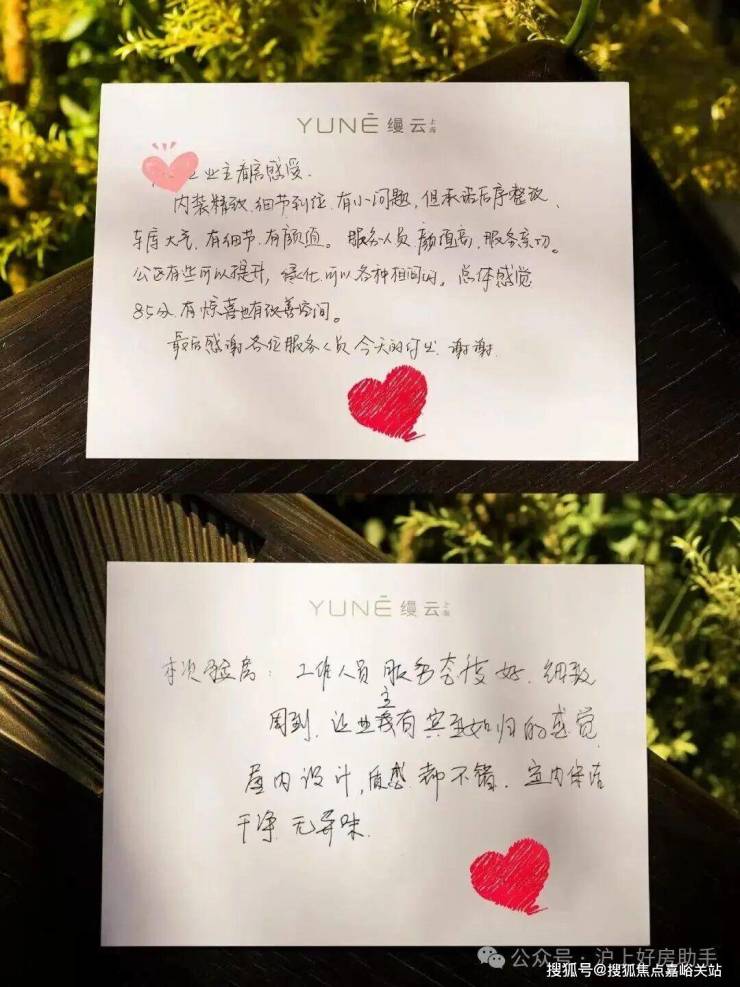 YUNÉ 缦云上海
业主看房感受.
内装精致.细节到位.有小问题,但承诺后序整改、
车库大气.有细节.有颜值。服务人员.颜值高,服务亲切。
公区有些可以提升,绿化.可以各种相间的。总体感觉
85分.有惊喜也有改善空间。
最后感谢各位服务人员今天的付出.谢谢.
YUNÉ 缦云上海
本次验房:工作人员服务态度好.细致
周到.让业主有宾至如归的感觉
屋内设计,质感都不错.室内保洁
干净无异味.
公众号·沪上好房助手
搜狐号@搜狐焦点嘉峪关站